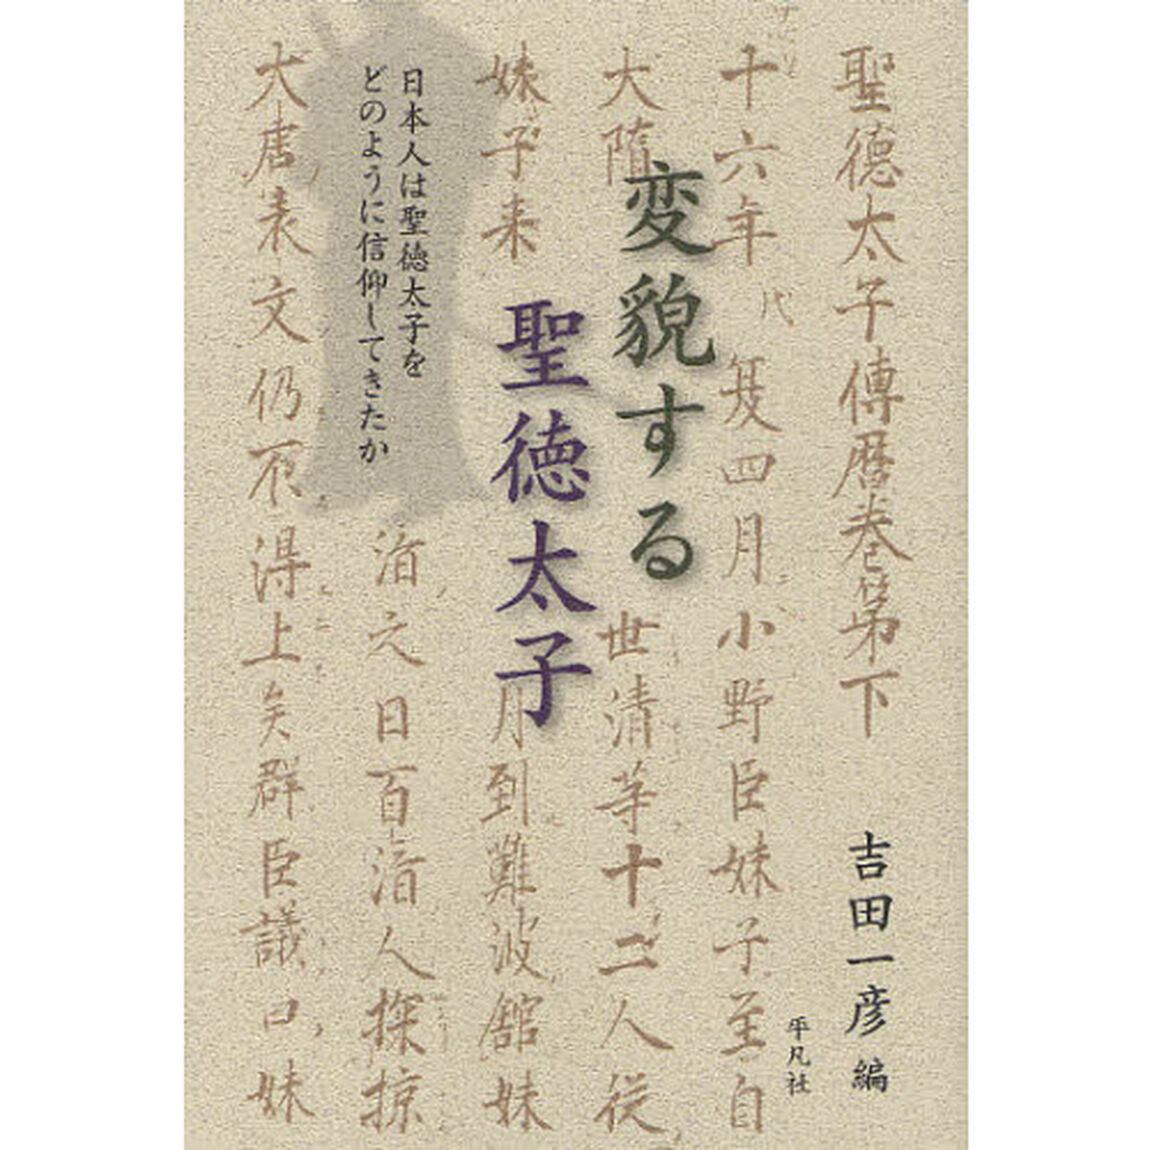 変貌する
聖徳太子
日本人は聖徳太子を
どのように信仰してきたか
吉田一彦 編
平凡社
聖德太子傳暦巻第下
十六年 四月小野臣妹子至自
大隋 世清等十二人従
妹子来 月到難波舘妹
日百 人探掠
大唐表文仍不得上矣群臣議曰妹